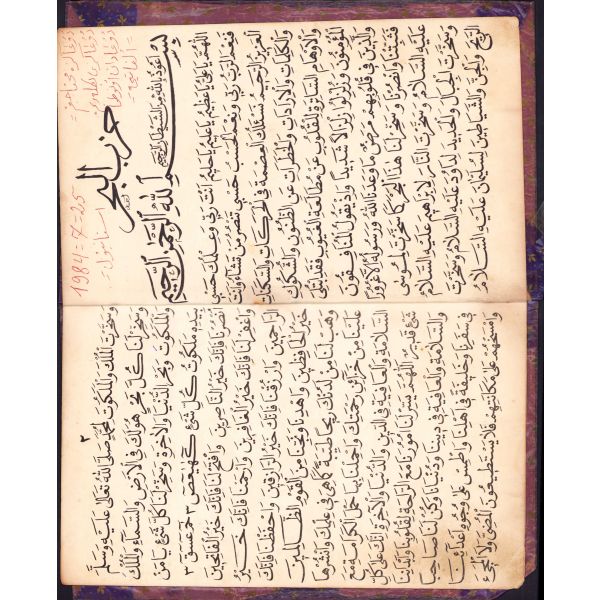 1984-7-25
استانبول
حزب البحر
اعوذ بالله من الشيطان الرجيم
بسم الله الرحمن الرحيم
اللهم يا علي يا عظيم يا عليم يا حليم انت ربي وعلمك حسبي
فنعم الرب ربي ونعم الحسب حسبي تنصر من تشاء وانت
العزيز الرحيم نسئلك العصمة في الحركات والسكنات
والكلمات والارادات والخطرات من الظنون والشكوك
والاوهام الساترة للقلوب عن مطالعة الغيوب فقد ابتلي
المؤمنون وزلزلوا زلزالا شديدا واذ يقول المنافقون
والذين في قلوبهم مرض ما وعدنا الله ورسوله الا غرورا
فثبتنا وانصرنا وسخر لنا هذا البحر كما سخرت لموسى
عليه السلام وسخرت النار لابراهيم عليه السلام
وسخرت الجبال والحديد لداود عليه السلام وسخرت
الريح والجن والشياطين لسليمان عليه السلام
٢
وسخرت الملك والملكوت لمحمد صلى الله تعالى عليه وسلم
وسخر لنا كل بحر هو لك في الارض والسماء والملك
والملكوت وبحر الدنيا والاخرة وسخر لنا كل شيء يا من
بيده ملكوت كل شيء كهيعص ٣ حمعسق ٣
انصرنا فانك خير الناصرين وافتح لنا فانك خير الفاتحين
واغفر لنا فانك خير الغافرين وارحمنا فانك خير
الراحمين وارزقنا فانك خير الرازقين واحفظنا فانك
خير الحافظين واهدنا ونجنا من القوم الظالمين
وهب لنا من لدنك ريحا طيبة كما هي في علمك وانشرها
علينا من خزائن رحمتك واحملنا بها حمل الكرامة مع
السلامة والعافية في الدين والدنيا والاخرة انك على كل
شيء قدير اللهم يسر لنا امورنا مع الراحة لقلوبنا وابداننا
والسلامة والعافية في ديننا ودنيانا وكن لنا صاحبا
في سفرنا وخليفة في اهلنا واطمس على وجوه اعدائنا
وامسخهم على مكانتهم فلا يستطيعون المضي ولا المجيء